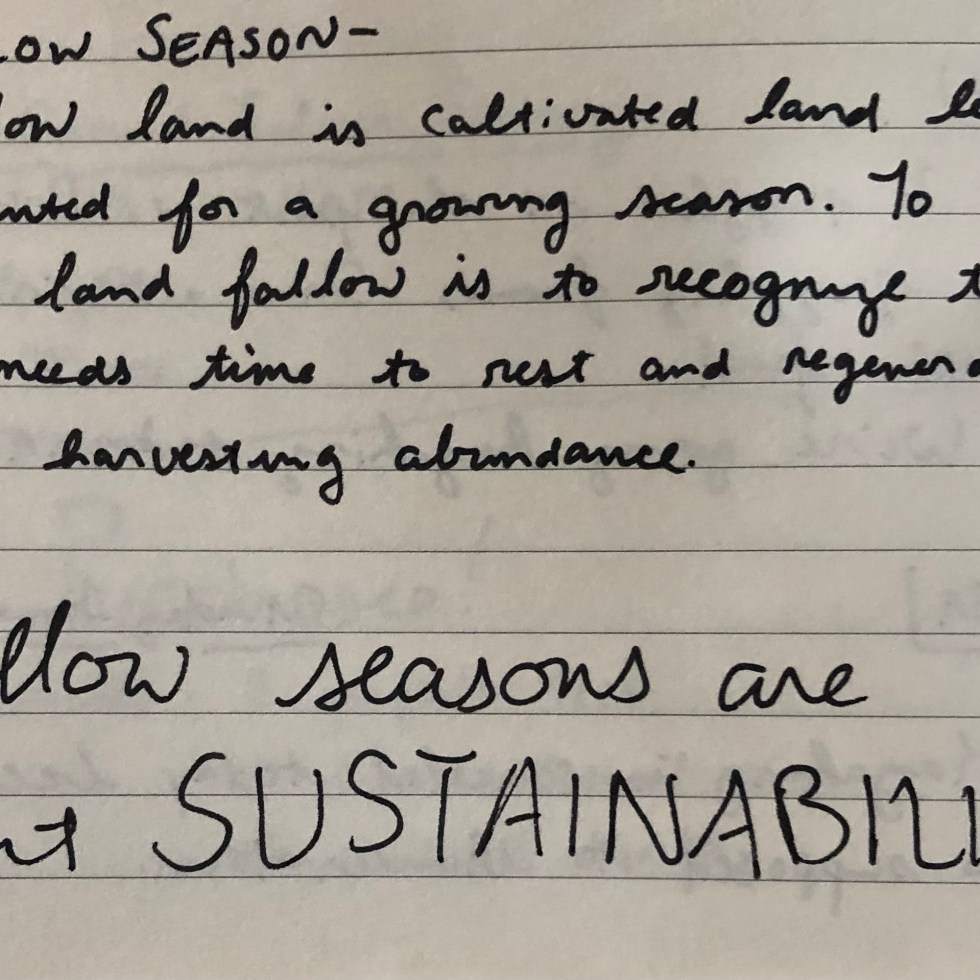 LOW SEASON-
low land is caltivated land le
nted for a growing season. To
land fallow is to recognize t
needs time to rest and regenera
harvesting abundance.
llow seasons are
ut SUSTAINABILI